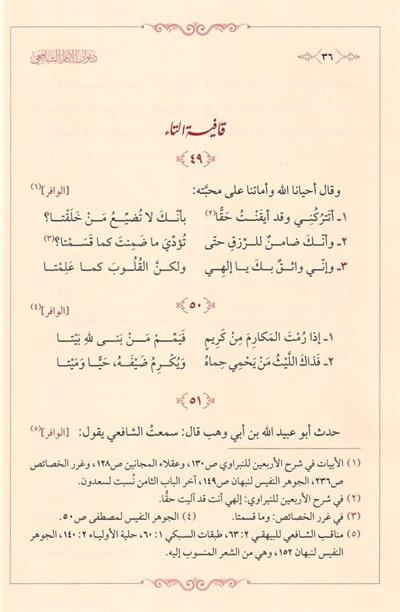 ٣٦ ديوان الإمام الشافعي
قافية التاء
٤٩
وقال أحيانا الله وأماتنا على محبَّته: [الوافر](١)
١ـ أتَتركُني وقد أيقَنْتُ حَقًّا(٢) بأنَّكَ لا تُضيِّعُ مَنْ خَلَقْتَا؟
٢ـ وأنَّكَ ضامنٌ للرِّزقِ حتّى تُؤدِّيَ ما ضَمِنتَ كما قَسَمْتَا؟(٣)
٣ـ وإنّي واثقٌ بكَ يا إلهي ولكنَّ القُلُوبَ كما عَلِمْتَا
٥٠
[الوافر](٤)
١ـ إذا رُمْتَ المَكارِمَ مِنْ كَرِيمٍ فَيَمِّمْ مَنْ بَنى للهِ بَيْتَا
٢ـ فَذاكَ اللَّيْثُ مَنْ يَحْمِي حِماهُ ويُكْرِمُ ضَيْفَهُ، حَيًّا ومَيْتَا
٥١
حدث أبو عبيد الله بن أبي وهب قال: سمعتُ الشافعي يقول: [الوافر](٥)
(١) الأبيات في شرح الأربعين للنبراوي ص١٣٠، وعقلاء المجانين ص١٢٨، وغرر الخصائص
ص٢٣٦، الجوهر النفيس لنبهان ص١٤٩، آخر الباب الثامن نُسبت لسعدون.
(٢) في شرح الأربعين للنبراوي: إلهي أنت قد آليت حقًّا.
(٣) في غرر الخصائص: وما قسمتا. (٤) الجوهر النفيس لمصطفى ص٥٠.
(٥) مناقب الشافعي للبيهقي ٢: ٦٣، طبقات السبكي ١: ٦٠، حلية الأولياء ٢: ١٤٠، الجوهر
النفيس لنبهان ١٥٢، وهي من الشعر المنسوب إليه.